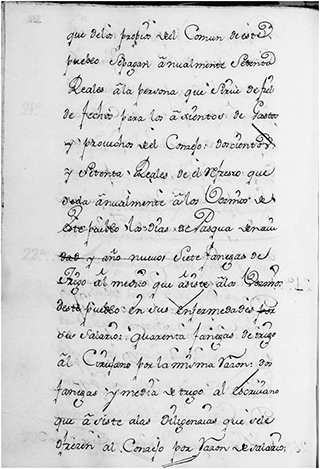 que delos propios del Comun de este
pueblo Sepagan ānualmente Setenta
Reales āla persona que Sirue de fiel
de fechos para los āsientos de gastos
y prouechos del Consejo: doscientos
y Setenta Reales de el refresco que
seda ānualmente ālos Vecinos de
este pueblo los dias de Pasqua denaui
dad y año nueuo: Siete fanegas de
trigo āl medico que āsiste alos Vecinos
deste pueblo en sus enfermedades por
su Salario: quarenta fanegas de trigo
āl Cirujano por la misma Razon: dos
fanegas y media de trigo al escriuano
que āsiste alas diligencias que sele
ofrezen al Consejo por Razon de salario: